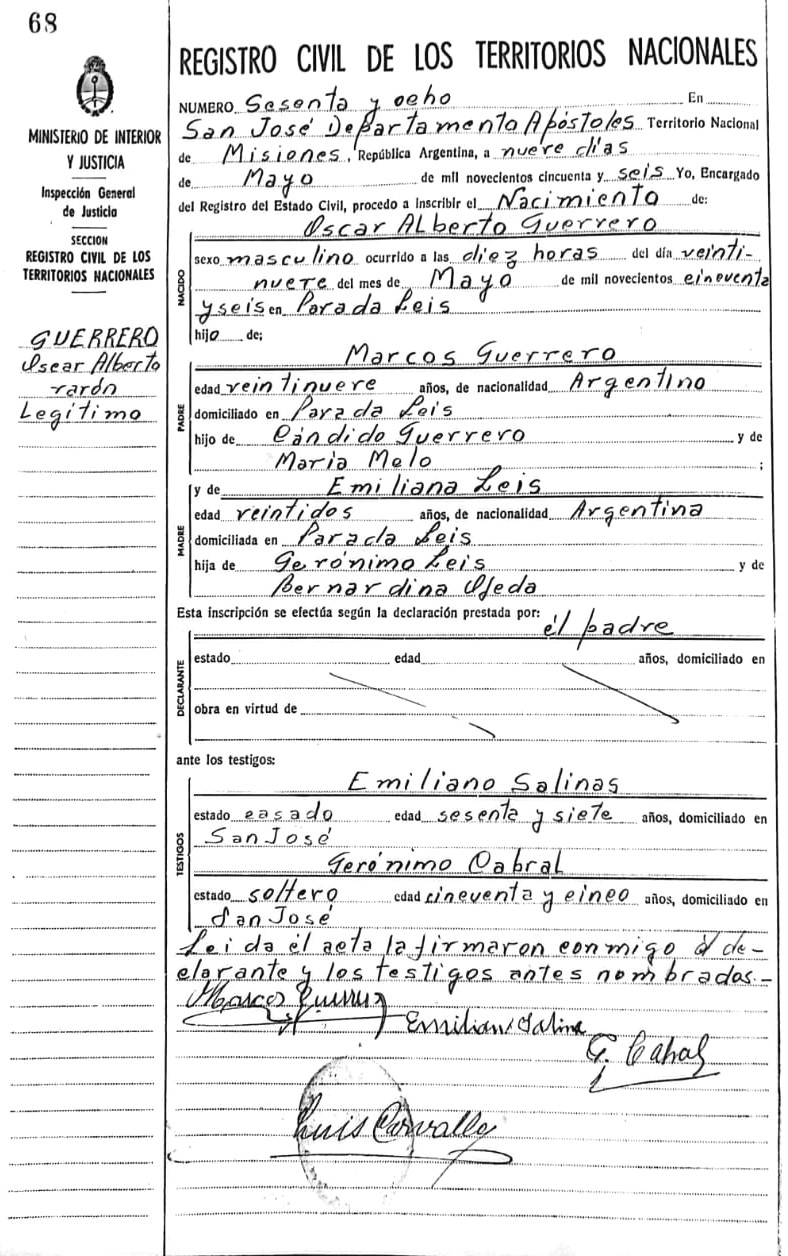 68
MINISTERIO DE INTERIOR
Y JUSTICIA
Inspección General
de Justicia
SECCION
REGISTRO CIVIL DE LOS
TERRITORIOS NACIONALES
GUERRERO
Oscar Alberto
varón
Legítimo
REGISTRO CIVIL DE LOS TERRITORIOS NACIONALES
NUMERO Sesenta y ocho En
San José Departamento Apóstoles Territorio Nacional
de Misiones, República Argentina, a nueve días
de Mayo de mil novecientos cincuenta y seis Yo, Encargado
del Registro del Estado Civil, procedo a inscribir el Nacimiento de:
Oscar Alberto Guerrero
NACIDO
sexo masculino ocurrido a las diez horas del día veinti-
nueve del mes de Mayo de mil novecientos cincuenta
y seis en Parada Leis
hijo de;
Marcos Guerrero
PADRE
edad veintinueve años, de nacionalidad Argentino
domiciliado en Parada Leis
hijo de Cándido Guerrero y de
María Melo ;
y de Emiliana Leis
MADRE
edad veintidos años, de nacionalidad Argentina
domiciliada en Parada Leis
hija de Gerónimo Leis y de
Bernardina Ojeda
Esta inscripción se efectúa según la declaración prestada por: él padre
DECLARANTE
estado edad años, domiciliado en
obra en virtud de
ante los testigos:
Emiliano Salinas
TESTIGOS
estado casado edad sesenta y siete años, domiciliado en
San José
Gerónimo Cabral
estado soltero edad cincuenta y cinco años, domiciliado en
San José
Leida él acta la firmaron conmigo él de-
clarante y los testigos antes nombrados.-
Marcos Guerrero
Emiliano Salina
G. Cabral
Luis Carvallo